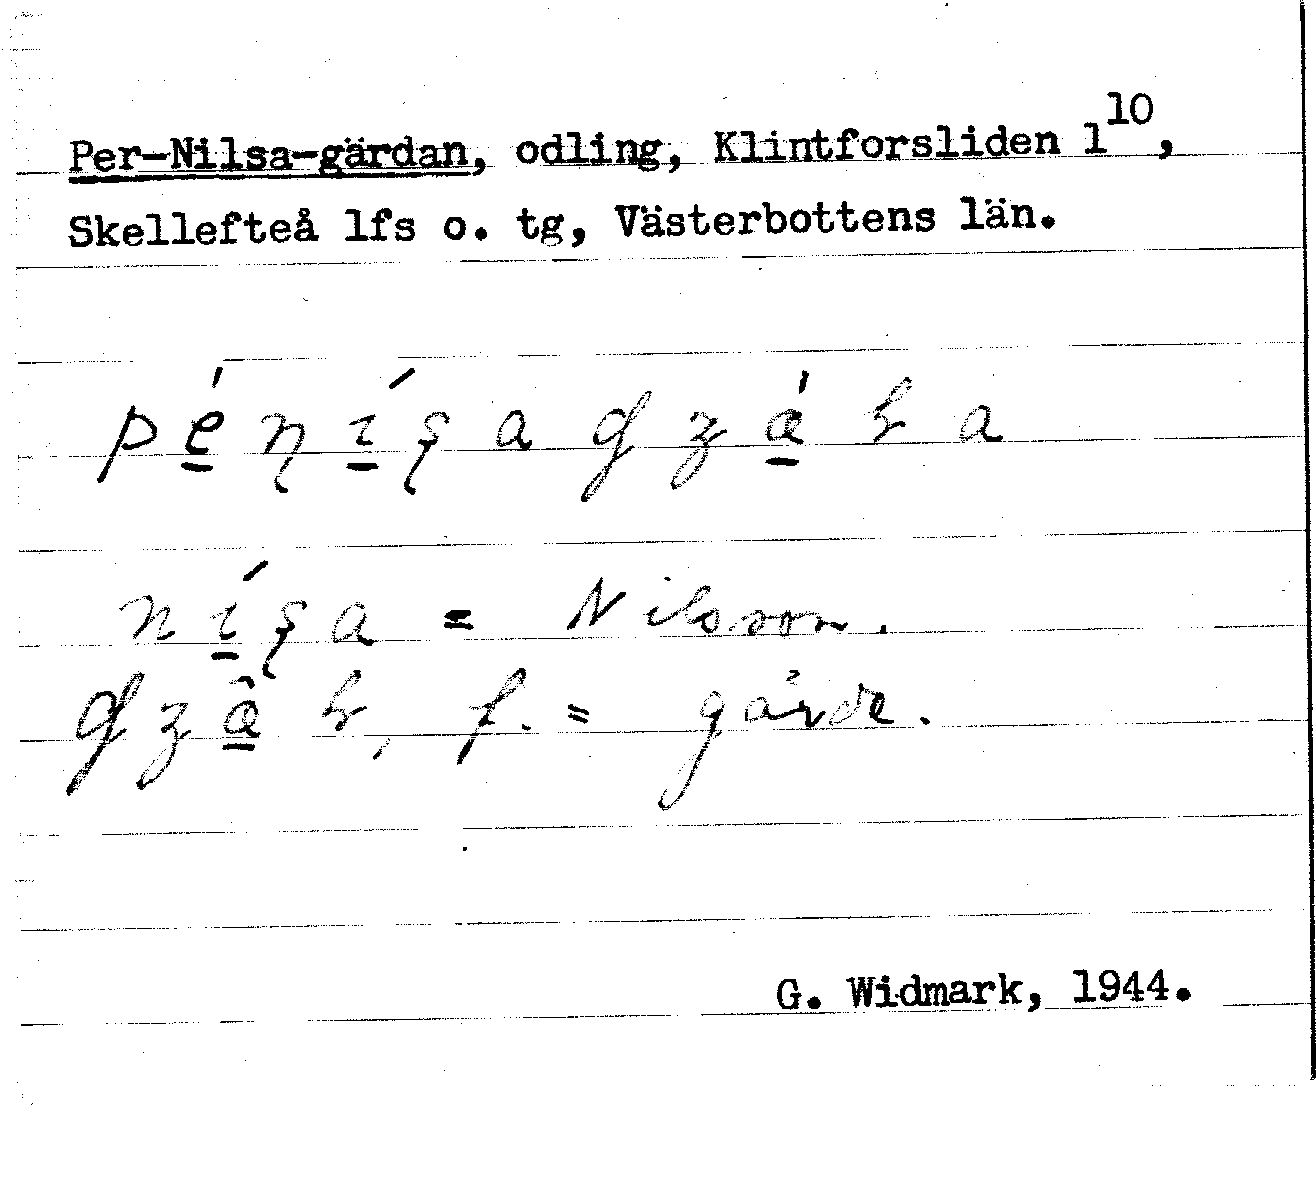 Per-Nilsa-gärdan, odling, Klintforsliden 1¹⁰,
Skellefteå lfs o. tg, Västerbottens län.
nı̲́ʂa = Nilsson.
f. = gärde.
G. Widmark, 1944.